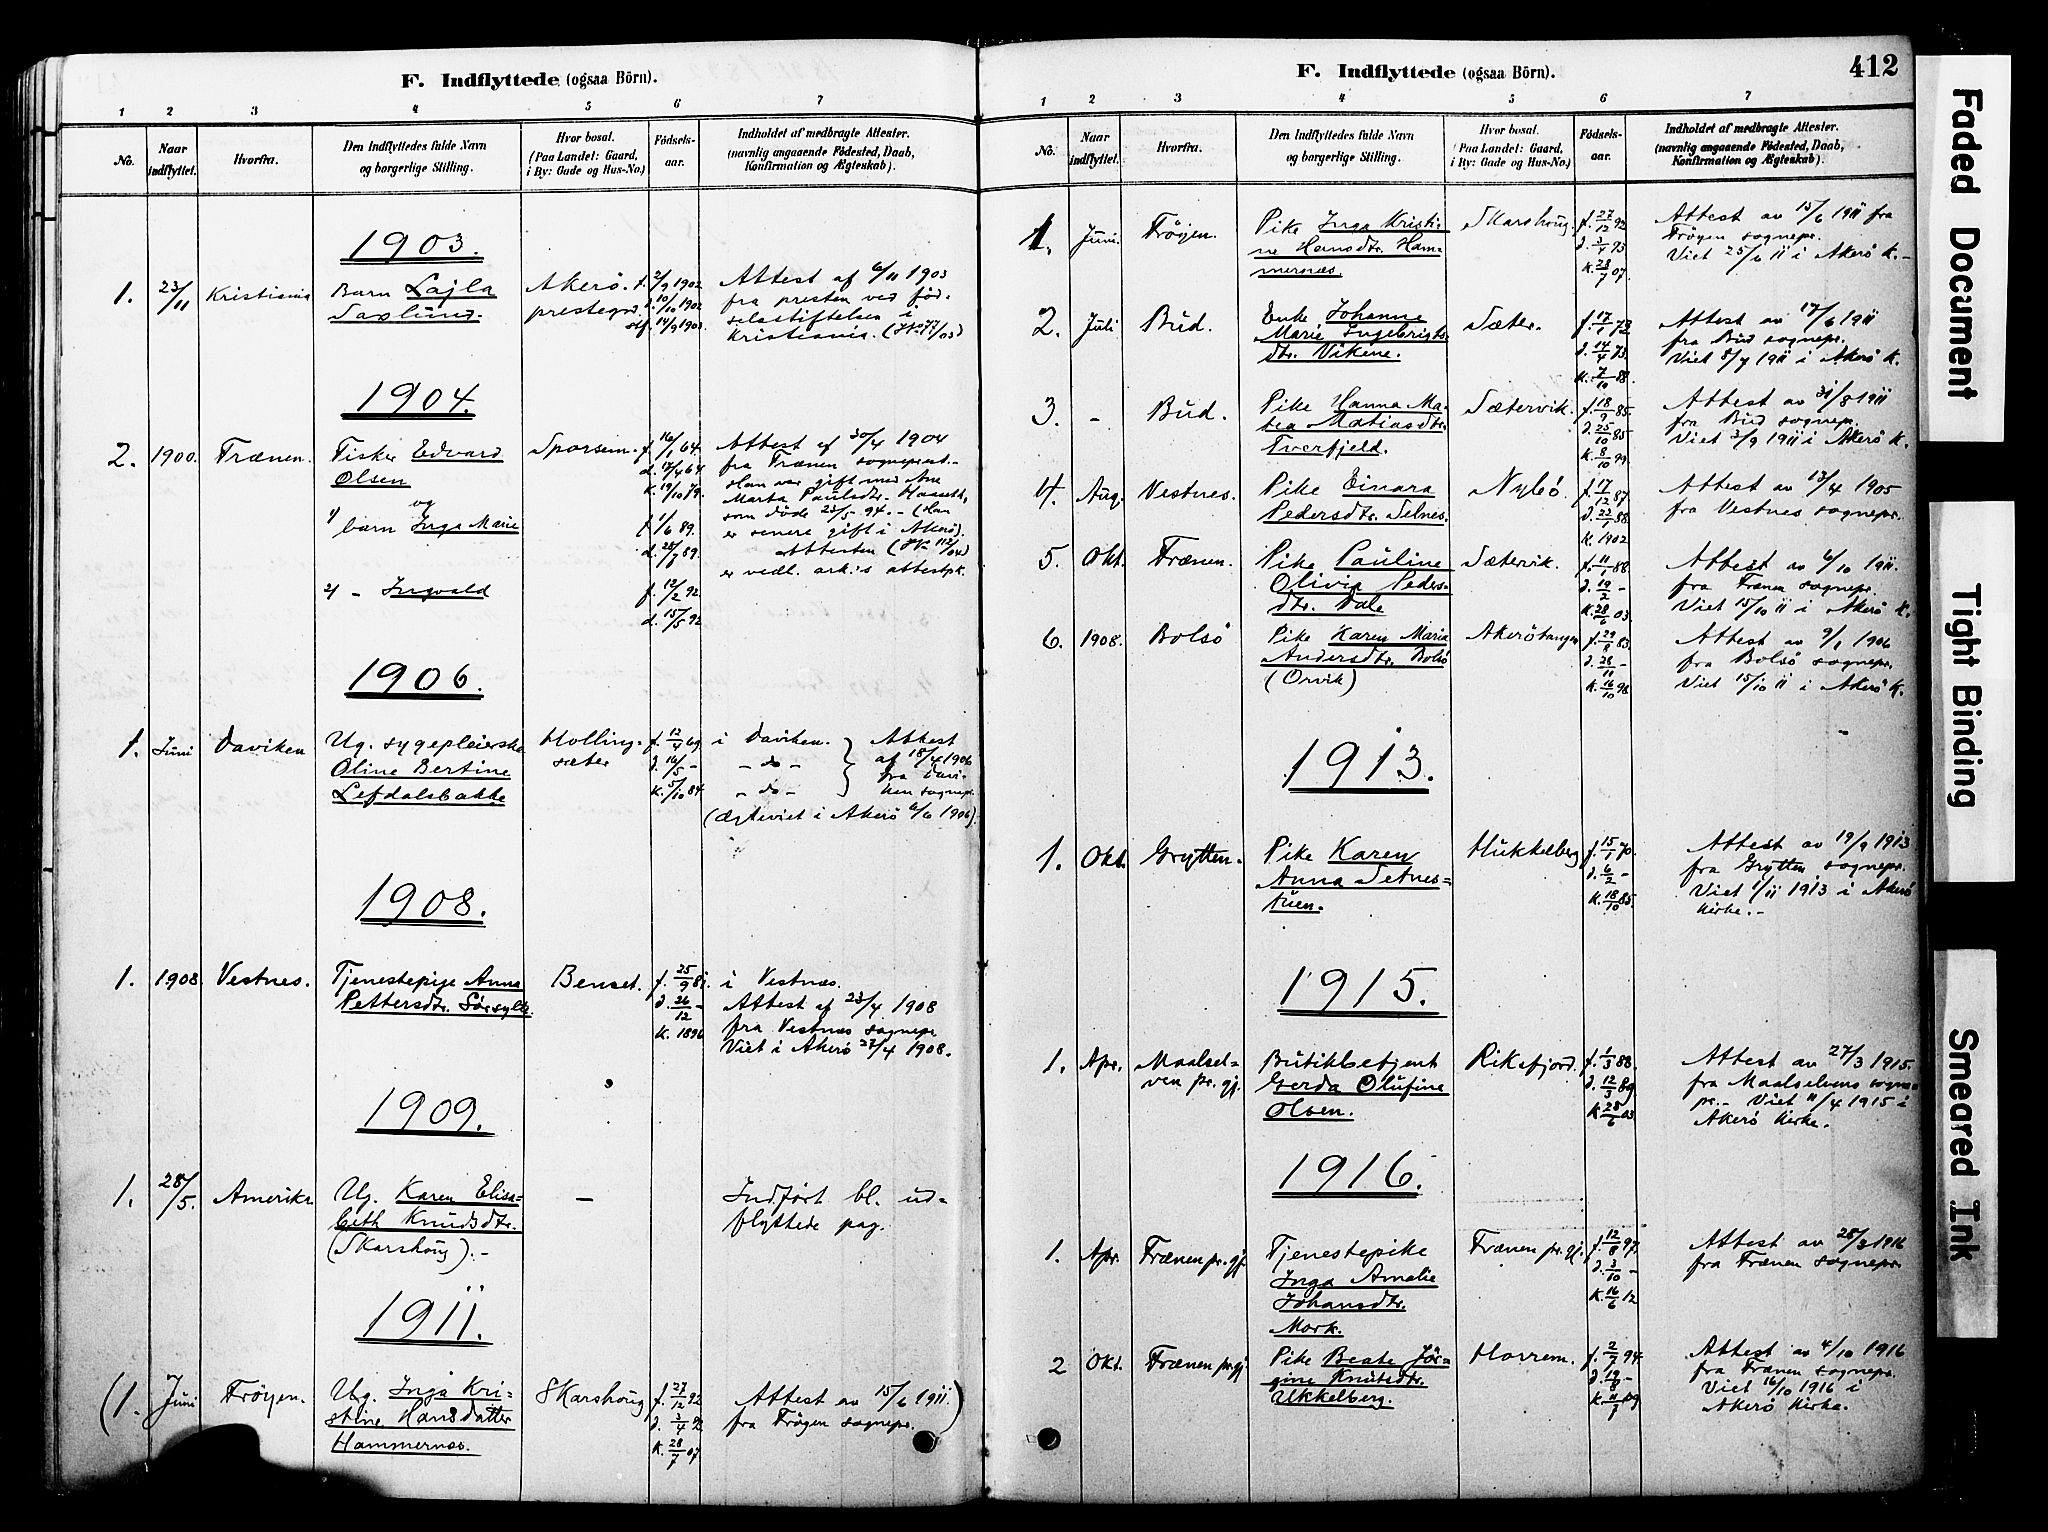 F. Indflyttede (ogsaa Börn).
1 2 3 4 5 6 7
No. Naar indflyttet. Hvorfra. Den Indflyttedes fulde Navn og borgerlige Stilling. Hvor bosat. (Paa Landet: Gaard, i By: Gade og Hus-No.) Fødsels-aar. Indholdet af medbragte Attester. (navnlig angaaende Fødested, Daab, Konfirmation og Ægteskab).
1903.
1. 23/11 Kristiania Barn Lajla Akerö f. 2/9 1902 Attest af 6/11 1903
Saxlund. prestegrd. d. 10/10 1902 fra presten ved fød-
stf. 14/9 1903 selsstiftelsen i
Kristiania. (JK 77/03)
1904.
2. 1900. Frænen. Fisker Edvard Sporsem. f. 16/1 64. Attest af 30/4 1904
Olsen d. 17/4 64 fra Frænen sogneprst.-
og K. 19/10 79. Han var gift med Ane
1) barn Inga Marie f. 1/6 89. Marta Paulsdtr.
d. 28/7 89. som døde 23/5 94.- (Han
er senere gift i Akerö).
Attesten (JK 112/04)
2) - Ingvald f. 12/2 92 er vedl. ark:s attestpk.
d. 15/5 92
1906.
1. Juni Daviken Ug. sygepleierske Holling- f. 12/4 69 i Daviken. Attest
Oline Bertine sæter d. 16/5 - - do - af 18/4 1906
Lefdalsbakke K. 5/10 84 - do - fra Davi-
ken sognepr.
(Ægteviet i Akerö 6/6 1906).
1908.
1. 1908. Vestnes. Tjenestepige Anna Benset. f. 25/9 81. i Vestnæs.
Pettersdtr. Sörsylte. d. 26/12 - Attest af 23/4 1908
K. 1896 fra Vestnæs sognepr.
Viet i Akerö 27/4 1908.
1909.
1. 28/5. Amerika. Ug. Karen Elisa- - Indført bl. ud-
beth Knudsdtr. flyttede pag.
(Skarshoug).-
1911.
(1. Juni Frøyen. Ug. Inga Kri- Skarshoug f. 27/12 92 Attest av 15/6 1911.)
stine Hansdatter d. 3/4 92 fra Frøyen sognepr.
Hammernes. K. 28/7 07
412
F. Indflyttede (ogsaa Börn).
1 2 3 4 5 6 7
No. Naar indflyttet. Hvorfra. Den Indflyttedes fulde Navn og borgerlige Stilling. Hvor bosat. (Paa Landet: Gaard, i By: Gade og Hus-No.) Fødsels-aar. Indholdet af medbragte Attester. (navnlig angaaende Fødested, Daab, Konfirmation og Ægteskab).
1. Juni. Frøyen. Pike Inga Kristi- Skarshoug. f. 27/12 92 Attest av 15/6 1911 fra
ne Hansdtr. Ham- d. 3/4 93 Frøyen sognepr.
mernæs. K. 28/7 07. Viet 25/6 11 i Akerö K.-
2. Juli Bud. Enke Johanne Sæter. f. 17/1 73 Attest av 17/6 1911
Marie Ingebrigts- d. 14/4 73. fra Bud sognepr.
dtr. Vikene. K. 7/10 88. Viet 5/7 1911 i Akerö K.
3. - Bud. Pike Hanna Ma- Sætervik. f. 18/9 85. Attest av 31/8 1911
tea Matiasdtr. d. 25/10 85 fra Bud sognepr.
Tverfjeld. K. 8/10 99. Viet 3/9 1911 i Akerö K.
4. Aug. Vestnes. Pike Einara Nybö. f. 17/12 87 Attest av 13/4 1905
Pedersdtr. Selnes. d. 22/1 88. fra Vestnes sognepr.
K. 1902
5. Okt. Frænen. Pike Pauline Sætervik. f. 11/1 88 Attest av 6/10 1911.
Olivia Peders- d. 19/2 - fra Frænen sognepr.
dtr. Dale K. 28/6 03 Viet 15/10 11 i Akerö K.
6. 1908. Bolsö Pike Karen Maria Akerötangen f. 29/8 83. Attest av 9/1 1906
Andersdtr. Bolsö d. 28/11 - fra Bolsö sognepr.
(Orvik) K. 16/10 98 Viet 15/10 11 i Akerö K.
1913.
1. Okt. Grytten. Pike Karen Hukkelberg f. 15/1 70. Attest av 19/9 1913
Anna Setnes- d. 6/2 - fra Grytten sognepr.
tuen. K. 18/10 85. Viet 1/11 1913 i Akerö
Kirke.-
1915.
1. Apr. Maalsel- Butikbetjent Riksfjord. f. 1/3 88. Attest av 27/3 1915.
ven pr.gj. Gerda Olufine d. 12/3 89 fra Maalselvens sogne-
Olsen. K. 28/6 03 pr.- Viet 11/4 1915 i
Akerö Kirke.
1916.
1. Apr. Frænen pr.gj. Tjenestepike Frænen pr.gj. f. 12/8 97. Attest av 25/3 1916
Inga Amalie d. 3/10 - fra Frænen sognepr.
Johansdtr. K. 16/6 12
Mork.
2 Okt. Frænen pr.gj. Pike Beate Jör- Horrem. f. 2/7 94. Attest av 4/10 1916
gine Knutsdtr. d. 19/8 - fra Frænen sognepr.
Ukkelberg. K. 11/7 09 Viet 16/10 1916 i
Akerö Kirke.
Faded Document
Tight Binding
Smeared Ink